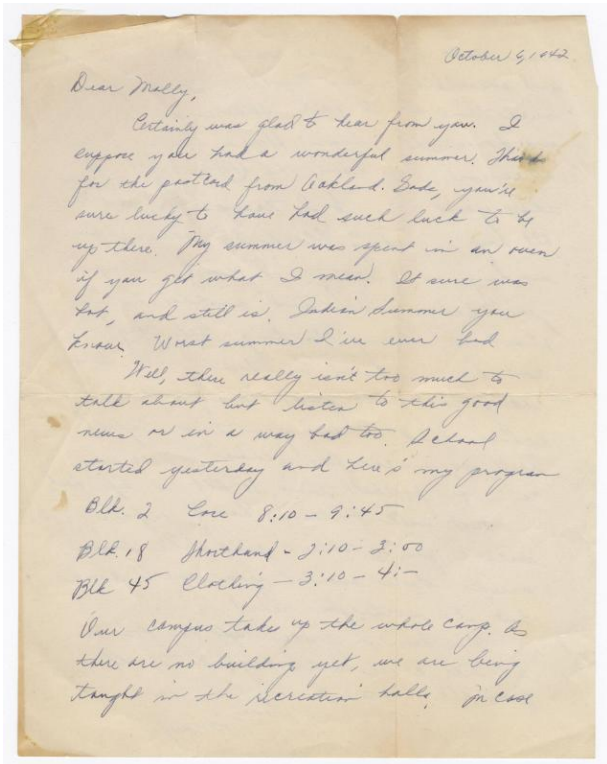 October 6, 1942
Dear Molly,
Certainly was glad to hear from you. I
suppose you had a wonderful summer. Thanks
for the postcard from Oakland. Gods, you're
sure lucky to have had such luck to be
up there. My summer was spent in an oven
if you get what I mean. It sure was
hot, and still is. Indian Summer you
know. Worst summer I've ever had
Well, there really isn't too much to
talk about but listen to this good
news or in a way bad too. School
started yesterday and here's my program
Blk. 2 Core 8:10 - 9:45
Blk. 18 Shorthand - 2:10 - 3:00
Blk 45 Clothing - 3:10 - 4:-
Our campus takes up the whole camp. As
there are no building yet, we are being
taught in the recreation halls. In case